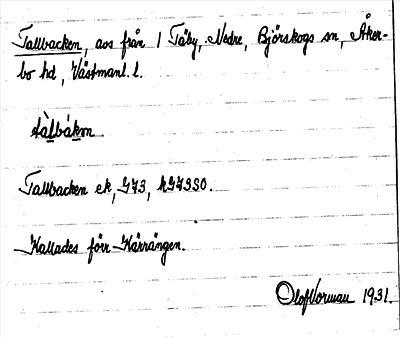 Tallbacken, avs från 1 Täby, Nedre, Björskogs sn, Åker-
bo hd, Västmanl. l.
tàlbákɱ
Tallbacken ek, G73, hG73SO.
Kallades förr Kärrängen.
Olof Norman 1931.